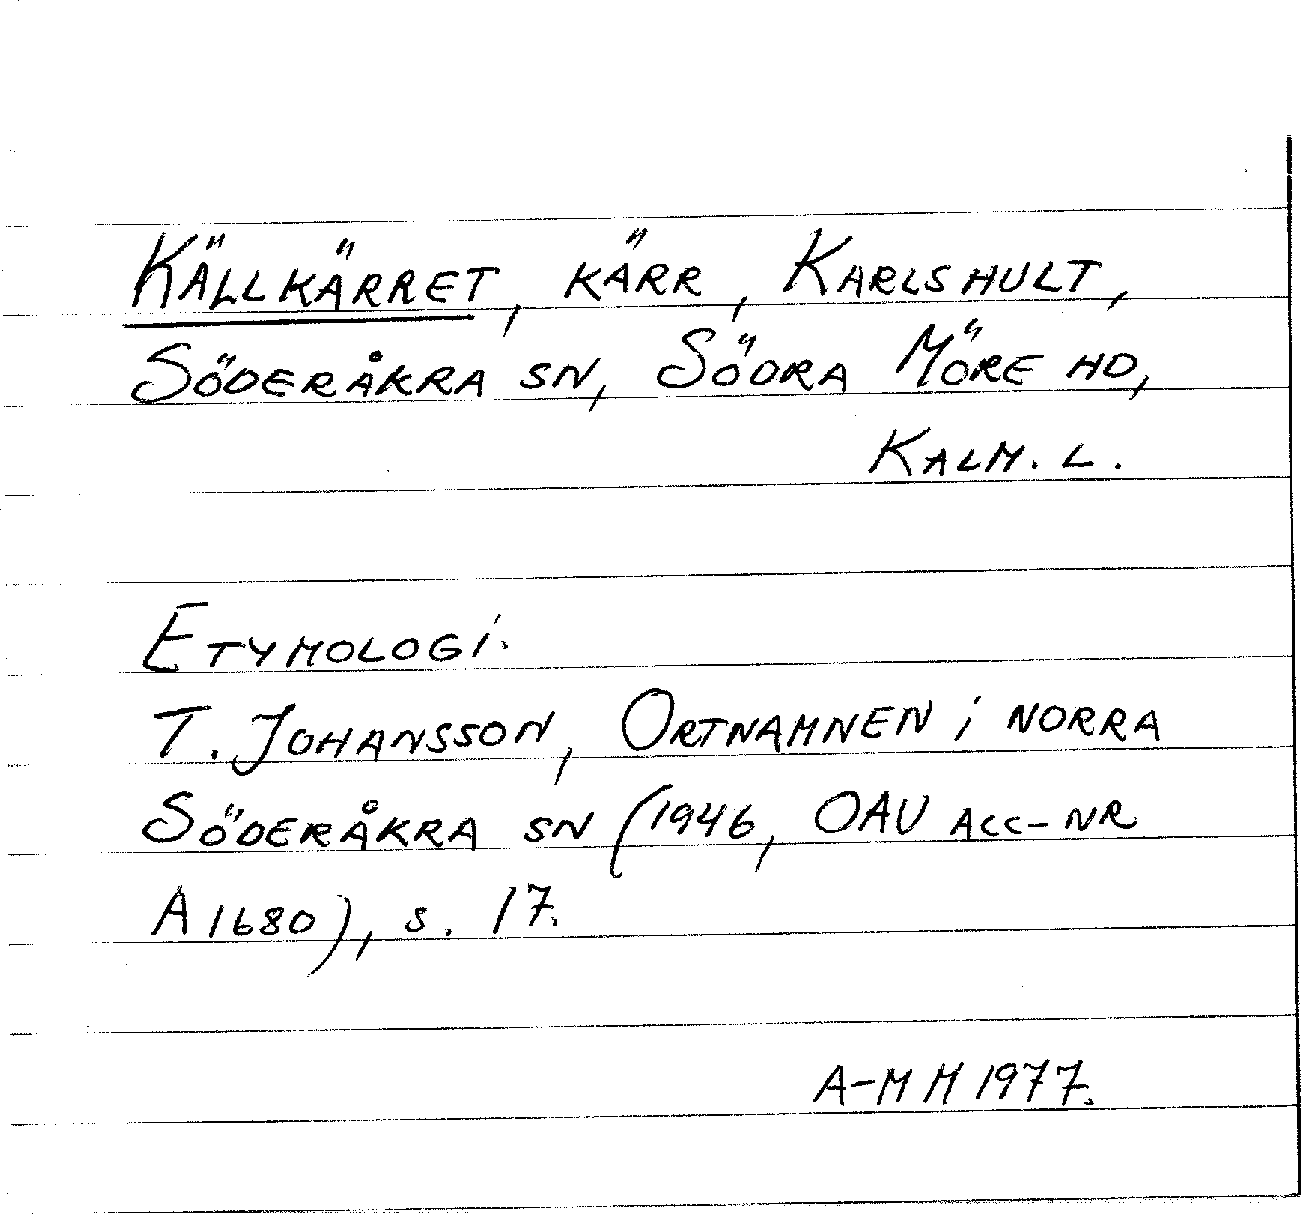 Källkärret, kärr, Karlshult,
Söderåkra sn, Södra Möre hd,
Kalm. l.
Etymologi.
T. Johansson, Ortnamnen i norra
Söderåkra sn (1946, OAU acc-nr
A1680), s. 17.
A-M M 1977.